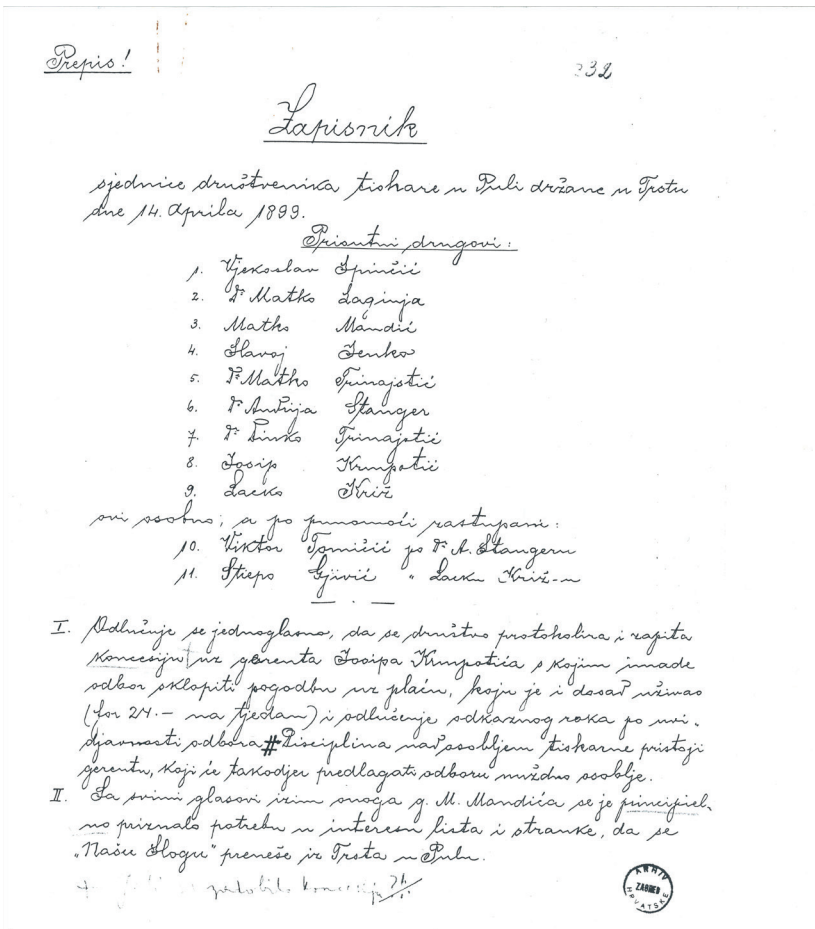 Prepis!
332
Zapisnik
sjednice društvenika tiskare u Puli držane u Trstu
dne 14. Aprila 1899.
Prisutni drugovi:
1. Vjekoslav Spinčić
2. Dr Matko Laginja
3. Matko Mandić
4. Slavoj Jenko
5. Dr Matko Trinajstić
6. Dr Andrija Stanger
7. Dr Dinko Trinajstić
8. Josip Krmpotić
9. Lacko Križ
ovi osobno; a po punomoći zastupani:
10. Viktor Tomičić po Dr A. Stangeru
11. Stiepo Gjivić " Lacku Križ-u
I. Odlučuje se jednoglasno, da se društvo protokolira i zapita
koncesiju uz gerenta Josipa Krmpotića s kojim imade
odbor sklopiti pogodbu uz plaću, koju je i dosad uživao
(for 24.– na tjedan) i odlučenje odkaznog roka po uvi-
djavnosti odbora # Disciplina nad osobljem tiskarne pristoji
gerentu, koji će takodjer predlagati odboru nuždno osoblje.
II. Sa svimi glasovi izim onoga g. M. Mandića se je principiel-
no priznalo potrebu u interesu lista i stranke, da se
„Našu Slogu" prenese iz Trsta u Pulu.
koncesiju
ARHIV
HRVATSKE
ZAGREB